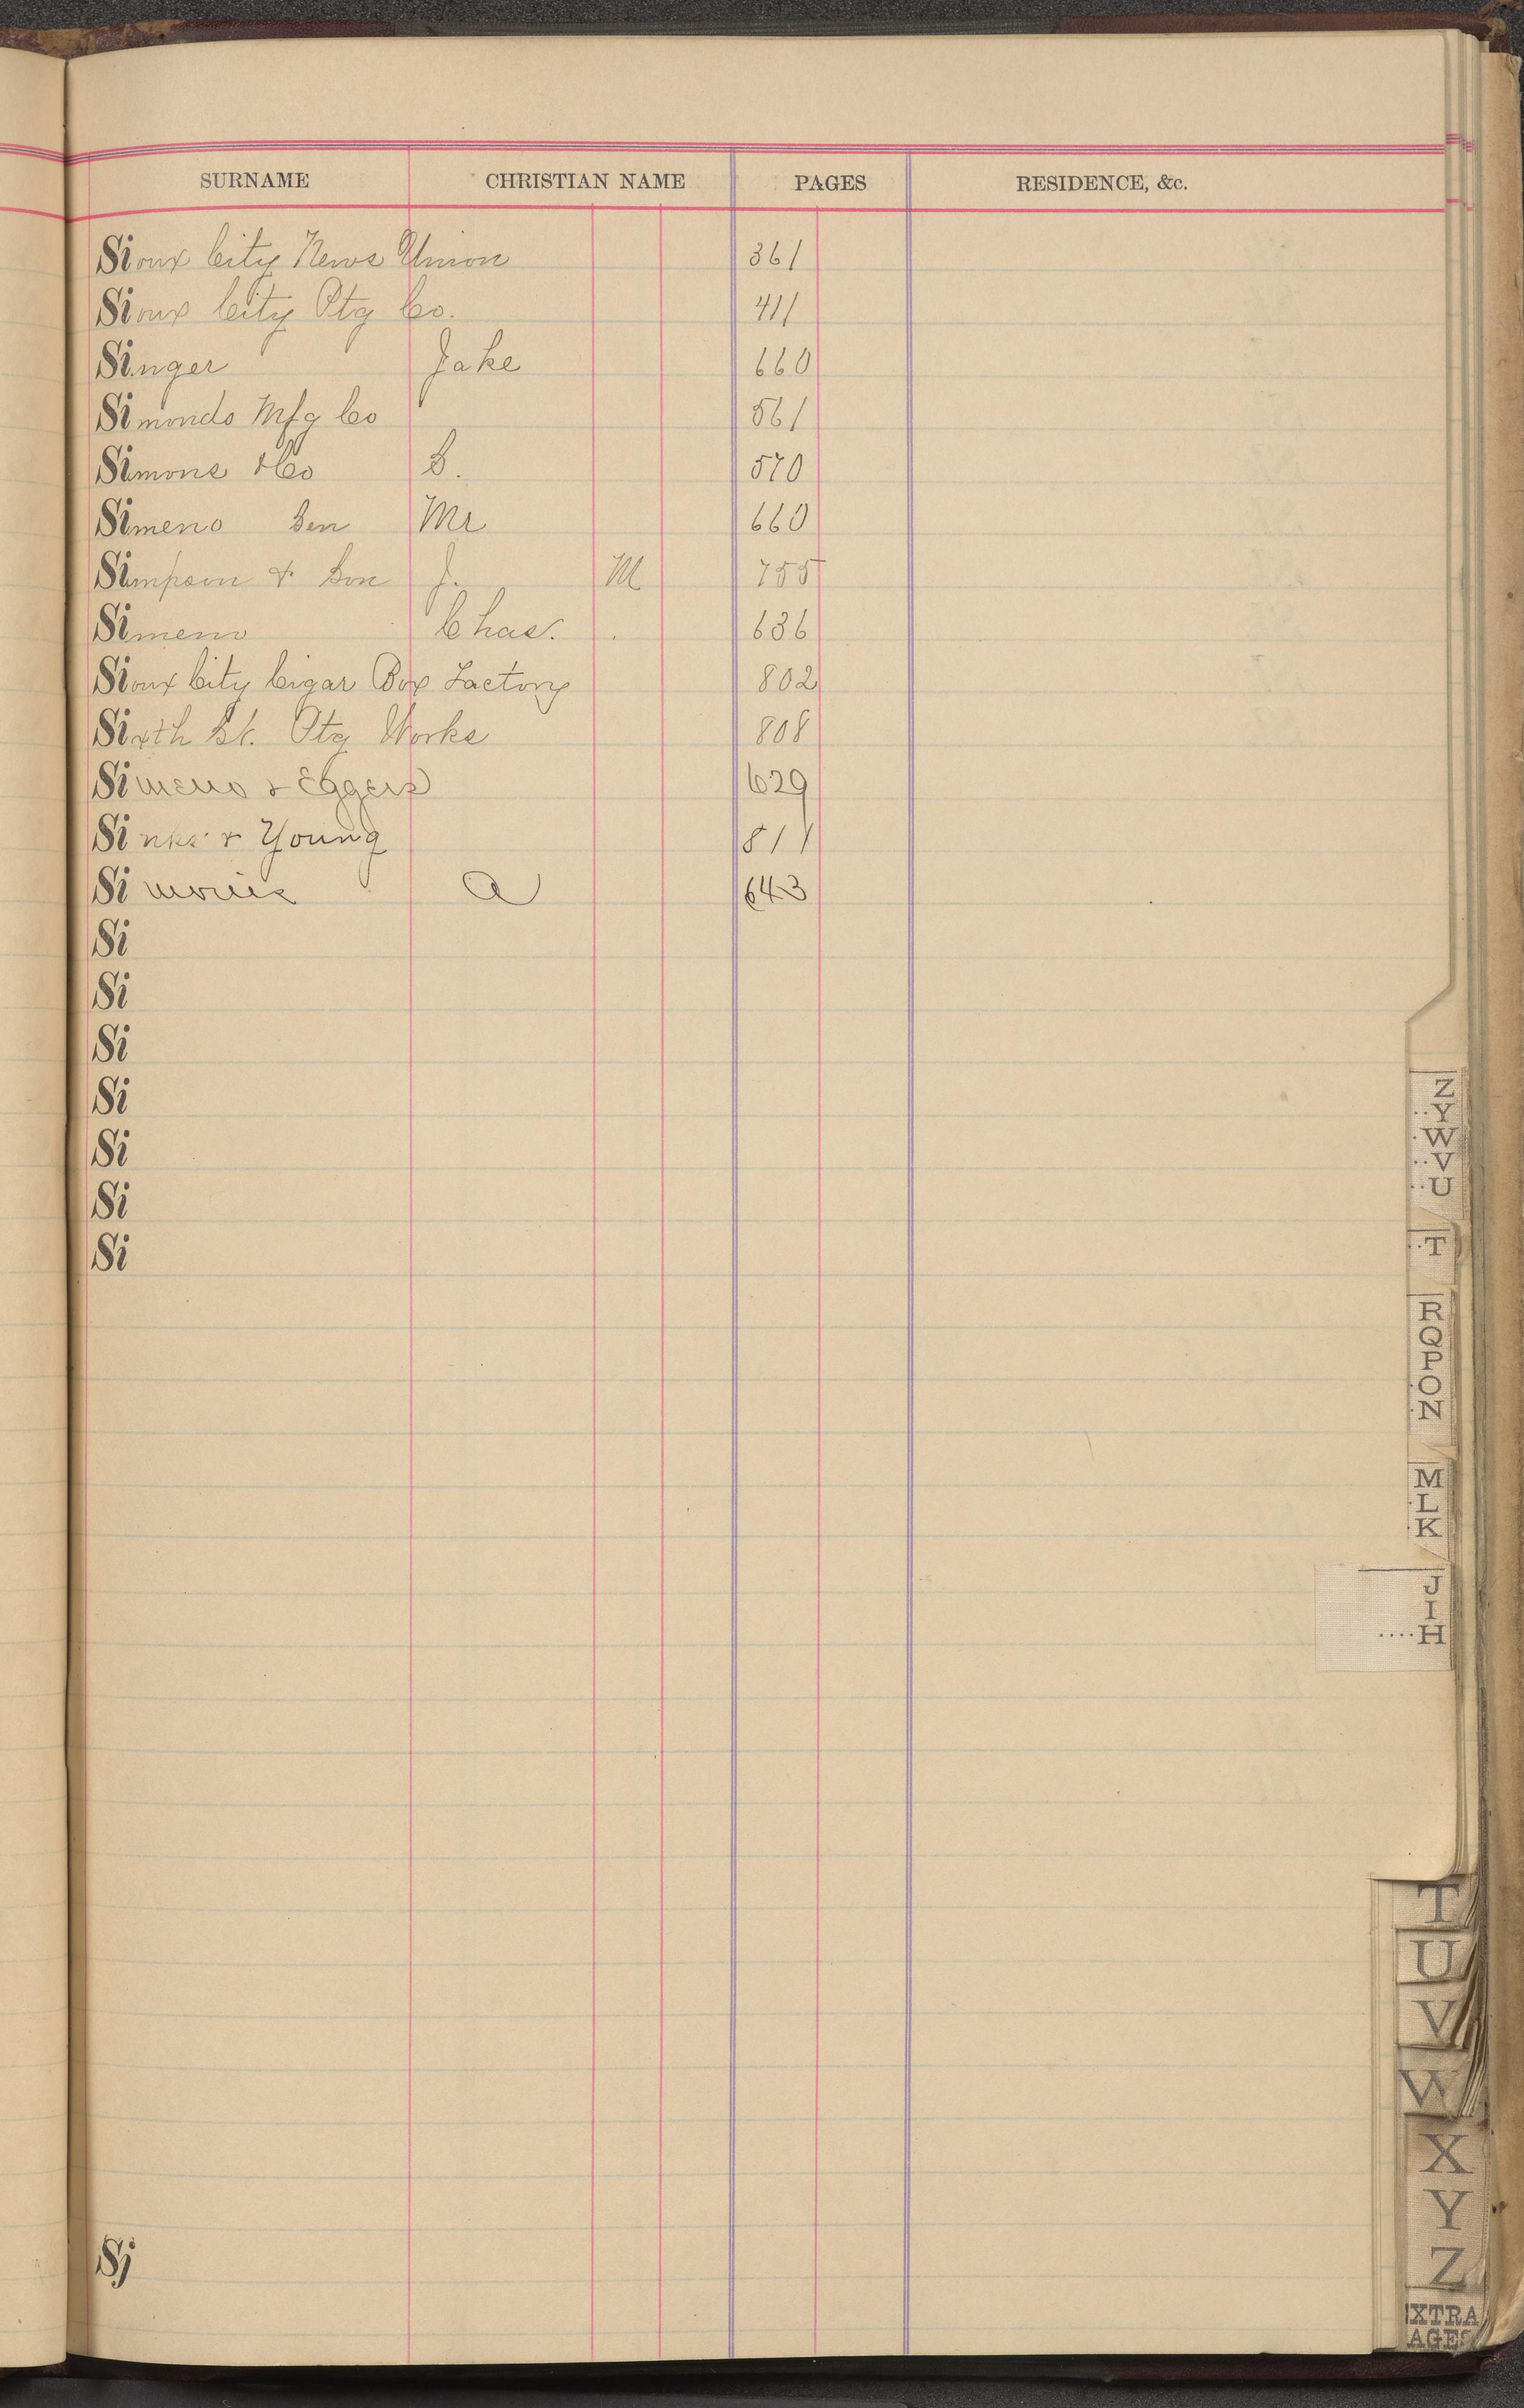 SURNAME CHRISTIAN NAME PAGES RESIDENCE, &c.
Sioux City News Union 361
Sioux City Ptg Co. 411
Singer Jake 660
Simonds Mfg Co 561
Simons & Co S. 570
Simeno Sen Mr 660
Simpson & Son J. M 755
Simeno Chas. 636
Sioux City Cigar Box Factory 802
Sixth St. Ptg Works 808
Simeno & Eggers 629
Sinks & Young 811
Simonis A 643
Si
Si
Si
Si
Si
Si
Si
Sj
Z
..Y
.W
..V
..U
..T
R
Q
P
.O
.N
M
.L
.K
J
I
....H
T
U
V
W
X
Y
Z
EXTRA
AGES